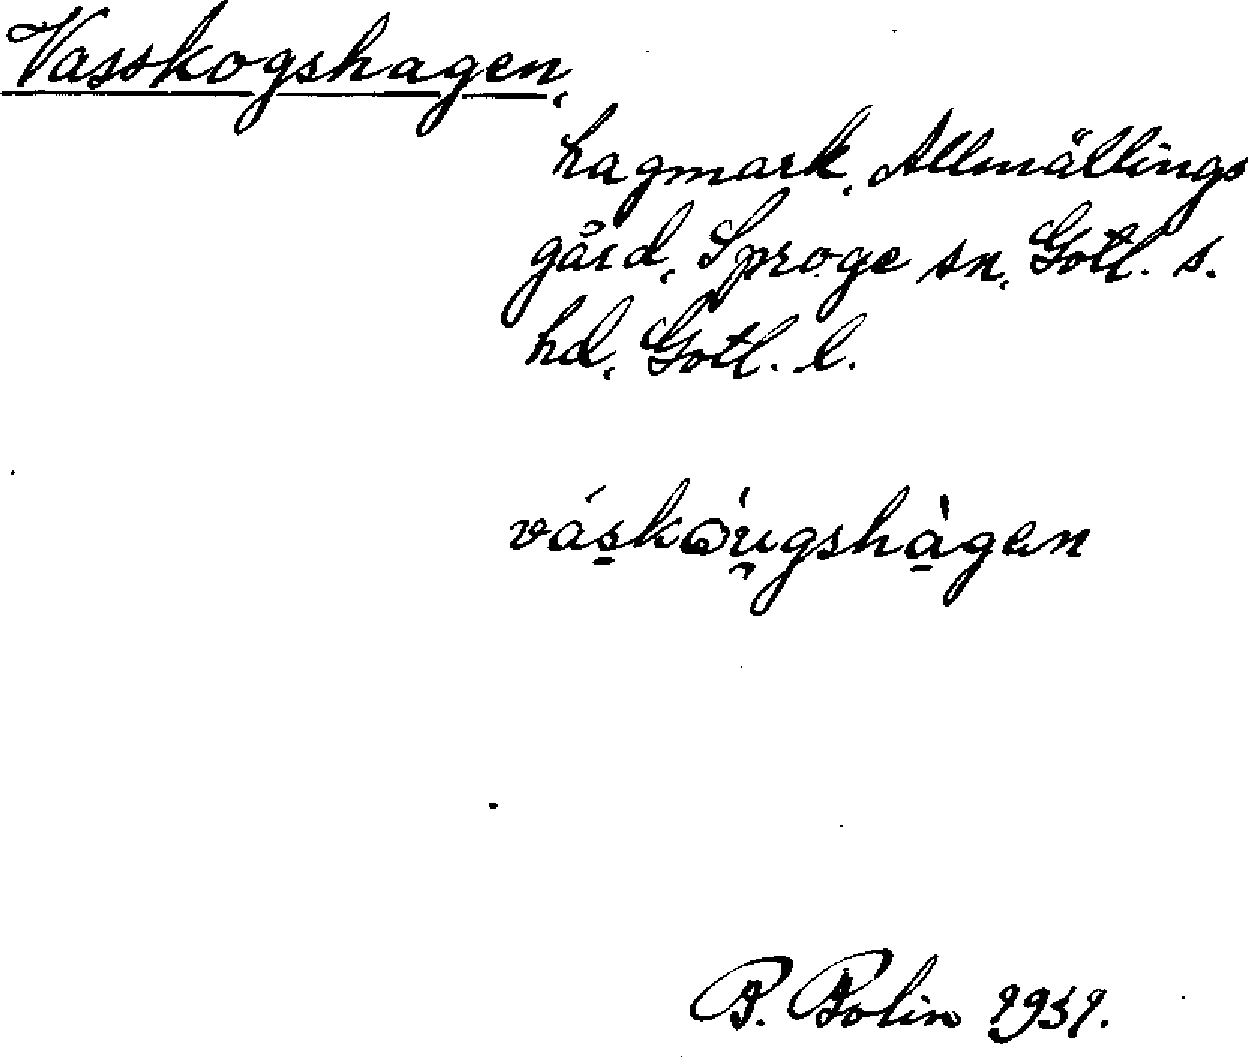 Vasskogshagen,
hagmark, Allmällings
gård, Sproge sn, Gotl. s.
hd, Gotl. l.
váskǫ́u̯gshàgen
P. Bolin 1931.